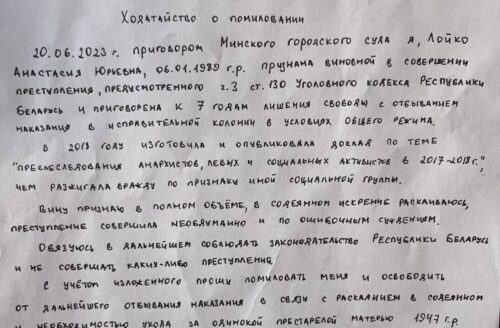 Ходатайство о помиловании
20.06.2023 г. приговором Минского городского суда я, Лойко
Анастасия Юрьевна, 06.01.1989 г.р. признана виновной в совершении
преступления, предусмотренного ч.3 ст.130 Уголовного кодекса Республики
Беларусь и приговорена к 7 годам лишения свободы с отбыванием
наказания в исправительной колонии в условиях общего режима.
В 2018 году изготовила и опубликовала доклад по теме
"Преследования анархистов, левых и социальных активистов в 2017-2018 г.",
чем разжигала вражду по признаки иной социальной группы.
Вину признаю в полном объёме, в содеянном искренне раскаиваюсь,
преступление совершила необдуманно и по ошибочным суждениям.
Обязуюсь в дальнейшем соблюдать законодательство Республики Беларусь
и не совершать каких-либо преступлений.
С учётом изложенного прошу помиловать меня и освободить
от дальнейшего отбывания наказания в связи с раскаянием в содеянном
и необходимостью ухода за одинокой престарелой матерью 1947 г.р.